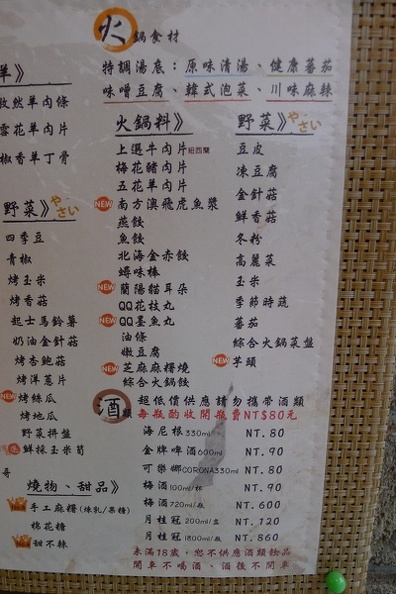 火鍋食材
特調湯底：原味清湯、健康蕃茄
味噌豆腐、韓式泡菜、川味麻辣
羊》
孜然羊肉條
雪花羊肉片
椒香羊丁骨
野菜》やさい
四季豆
青椒
烤玉米
烤香菇
起士馬鈴薯
奶油金針菇
烤杏鮑菇
烤洋蔥片
NEW 烤絲瓜
烤地瓜
野菜拼盤
鮮採玉米筍
燒物、甜品》
手工麻糬(煉乳/果糖)
棉花糖
甜不辣
火鍋料》
上選牛肉片紐西蘭
梅花豬肉片
五花羊肉片
NEW 南方澳飛虎魚漿
燕餃
魚餃
北海金赤餃
蟳味棒
NEW 蘭陽貓耳朵
QQ花枝丸
NEW QQ墨魚丸
油條
嫩豆腐
NEW 芝麻麻糬燒
綜合火鍋餃
野菜》やさい
豆皮
凍豆腐
金針菇
鮮香菇
冬粉
高麗菜
玉米
季節時蔬
蕃茄
綜合火鍋菜盤
NEW 芋頭
酒類 超低價供應請勿攜帶酒類
每瓶酌收開瓶費NT$80元
海尼根330ml NT.80
金牌啤酒600ml NT.90
可樂娜CORONA330ml NT.90
梅酒100ml/杯 NT.90
梅酒720ml/瓶 NT.600
月桂冠200ml/壺 NT.120
月桂冠1800ml/瓶 NT.860
未滿18歲，恕不供應酒類飲品
開車不喝酒、酒後不開車